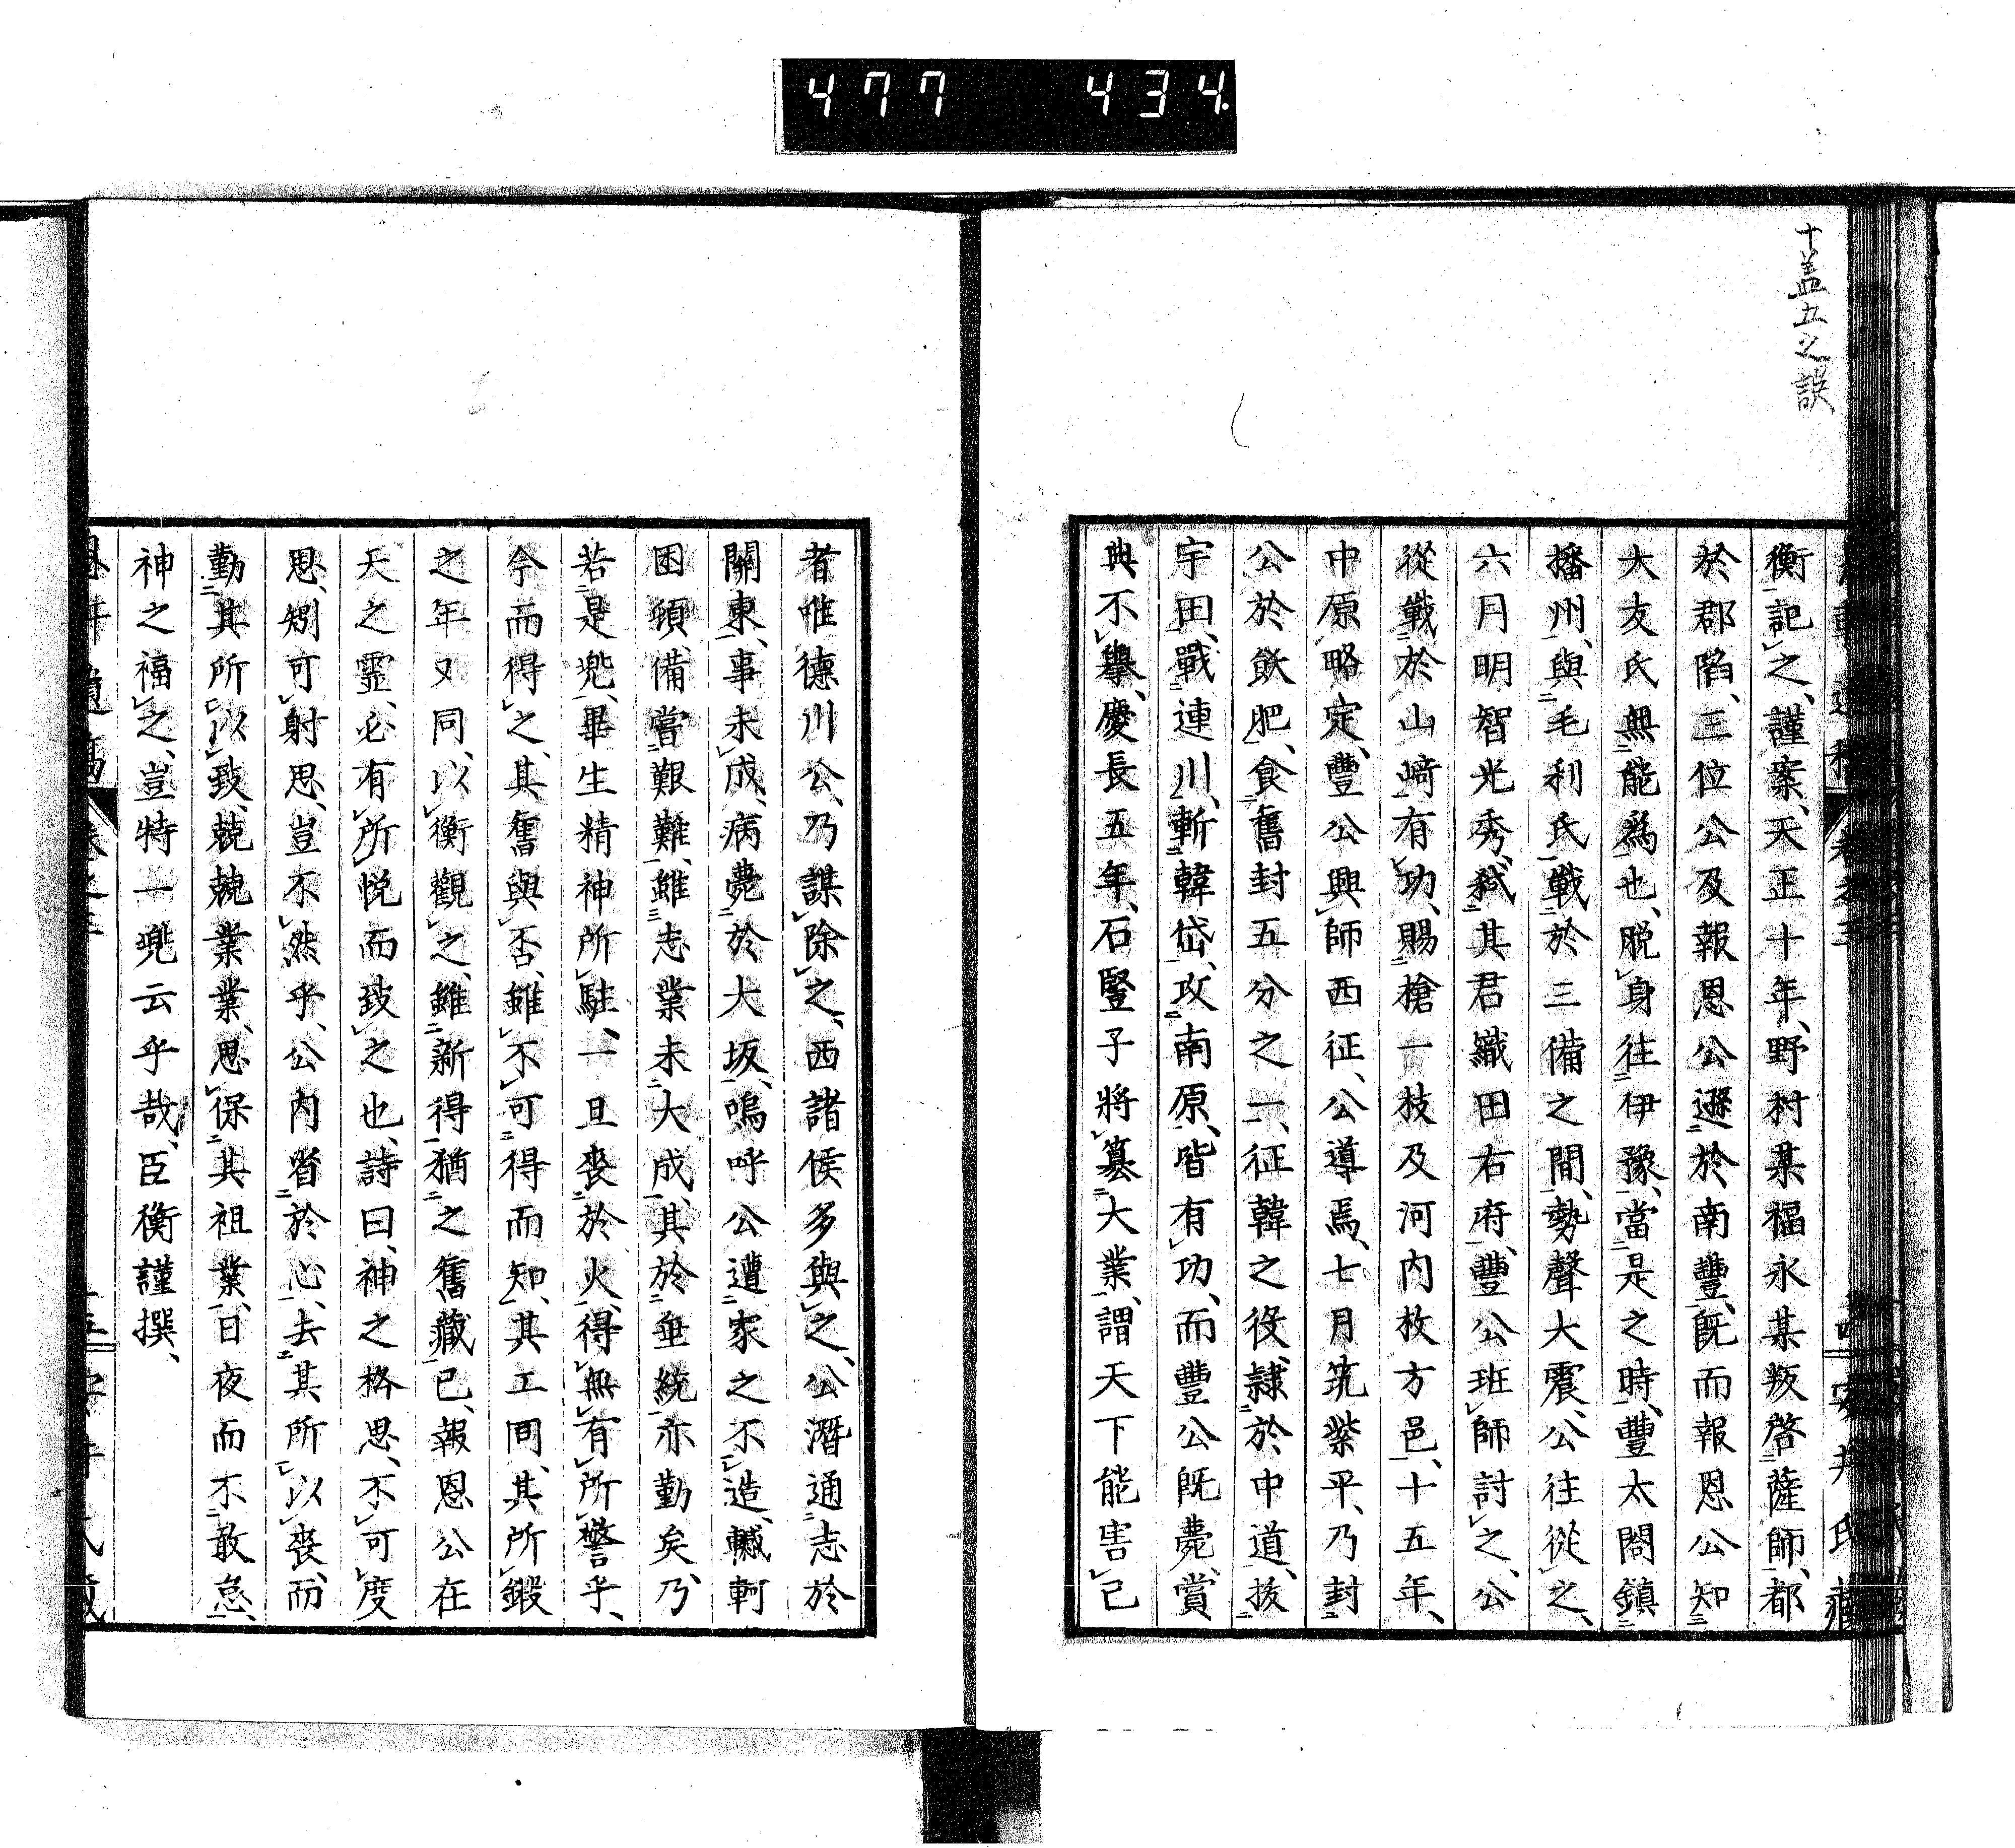 477 434.
十蓋五之誤
衡記之、謹案、天正十年、野村某福永某叛啓薩師、都
於郡陷、三位公及報恩公遜於南豐、旣而報恩公知
大友氏無能爲也、脱身往伊豫、當是之時、豐太閤鎮
播州、與毛利氏戰於三備之間、勢聲大震、公往從之、
六月明智光秀弑其君織田右府、豐公班師討之、公
從戰於山崎有功、賜槍一枝及河内枚方邑、十五年、
中原略定、豐公興師西征、公導焉、七月筑紫平、乃封
公於飫肥、食舊封五分之一、征韓之役、隷於中道、拔
宇田、戰連川、斬韓岱、攻南原、皆有功、而豐公旣薨、賞
典不擧、慶長五年、石豎子將簒大業、謂天下能害己
者唯德川公、乃謀除之、西諸侯多與之、公潛通志於
關東、事未成、病薨於大坂、嗚呼公遭家之不造、轗軻
困頓、備嘗艱難、雖志業未大成、其於垂統亦勤矣、乃
若是兜、畢生精神所駐、一旦喪於火、得無有所警乎、
今而得之、其舊與否、雖不可得而知、其工同、其所鍛
之年又同、以衡觀之、雖新得猶之舊藏已、報恩公在
天之靈、必有所悦而致之也、詩曰、神之格思、不可度
思、矧可射思、豈不然乎、公内省於心、去其所以喪、而
勤其所以致、兢兢業業、思保其祖業、日夜而不敢怠、
神之福之、豈特一兜云乎哉、臣衡謹撰、